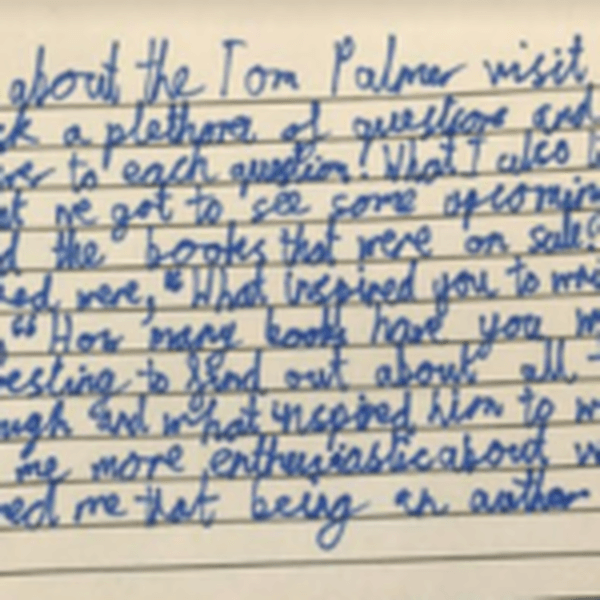 about the Tom Palmer visit
a plethora of questions and
to each question! What I also
we got to see some upcoming
the books that were on sale
were, "What inspired you to
"How many books have you
to find out about all
and what inspired him to
me more enthusiastic about
me that being an author